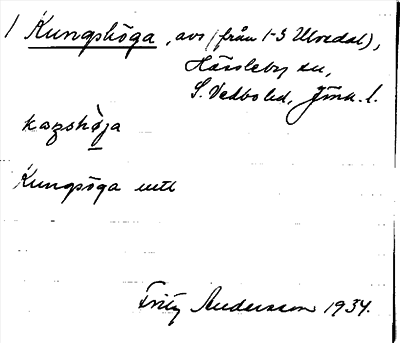 1 Kungshöga, avs (från 1-3 Ulvedal),
Hässleby sn,
S. Vedbo hd, Jönk. l.
kazshöja
Kungsöga uttl
Fritz Andersson 1934.